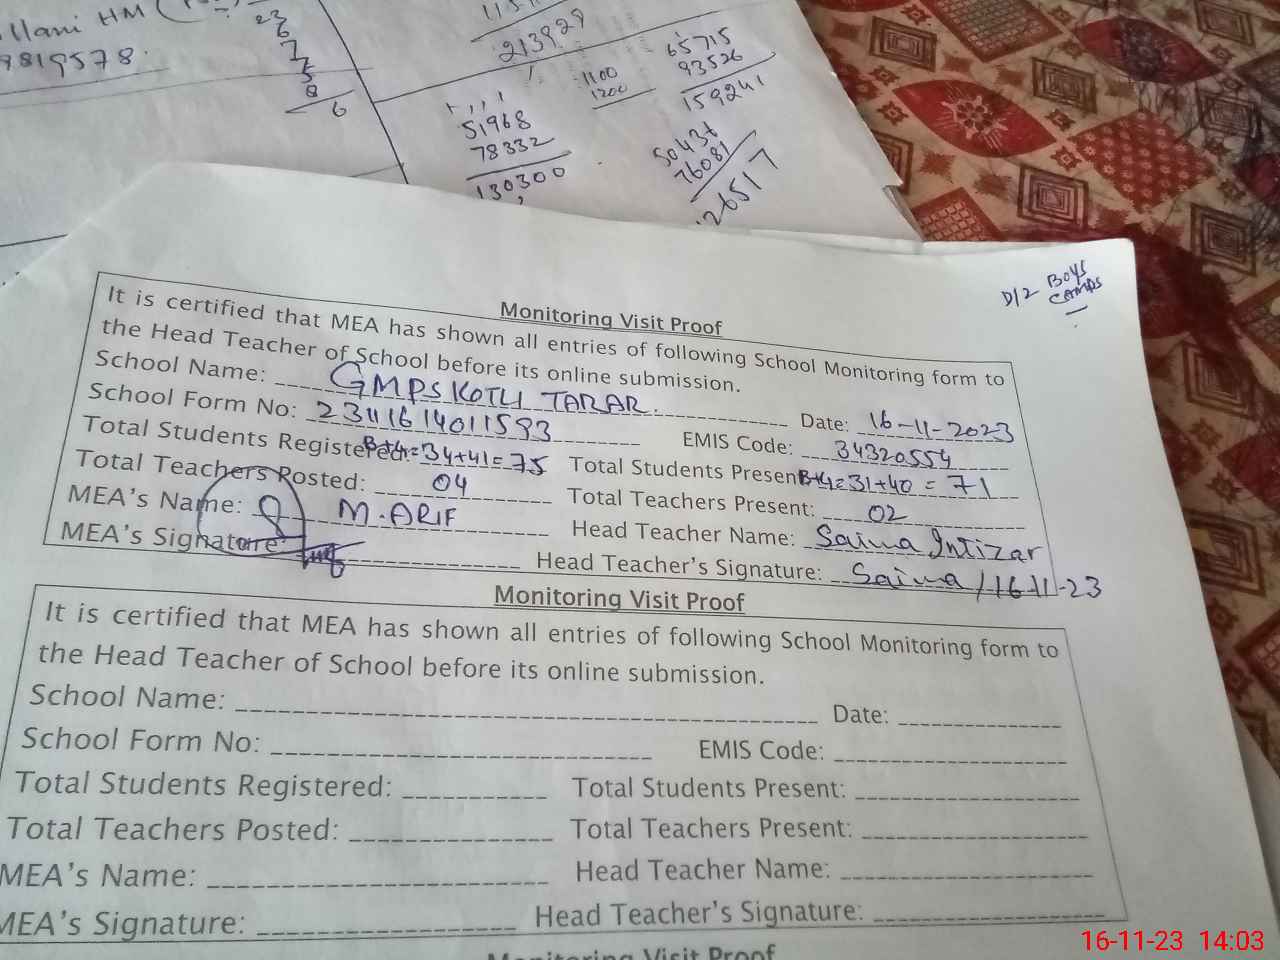 llani HM
9819578.
23
6
7
5
8
6
213929
1100
1200
65715
93526
159241
51968
78332
130300
76081
26517
D/2 BOYS
CAMPS
Monitoring Visit Proof
It is certified that MEA has shown all entries of following School Monitoring form to
the Head Teacher of School before its online submission.
School Name: GMPS KOTLI TARAR. Date: 16-11-2023
School Form No: 23111614011593 EMIS Code: 34320554
Total Students Registered: B+G=34+41=75 Total Students Present: B+G=31+40=71
Total Teachers Posted: 04 Total Teachers Present: 02
MEA's Name: M.ARIF Head Teacher Name: Saima Intizar
MEA's Signature: Head Teacher's Signature: Saima/16-11-23
Monitoring Visit Proof
It is certified that MEA has shown all entries of following School Monitoring form to
the Head Teacher of School before its online submission.
School Name: Date:
School Form No: EMIS Code:
Total Students Registered: Total Students Present:
Total Teachers Posted: Total Teachers Present:
MEA's Name: Head Teacher Name:
MEA's Signature: Head Teacher's Signature:
Monitoring Visit Proof
16-11-23 14:03